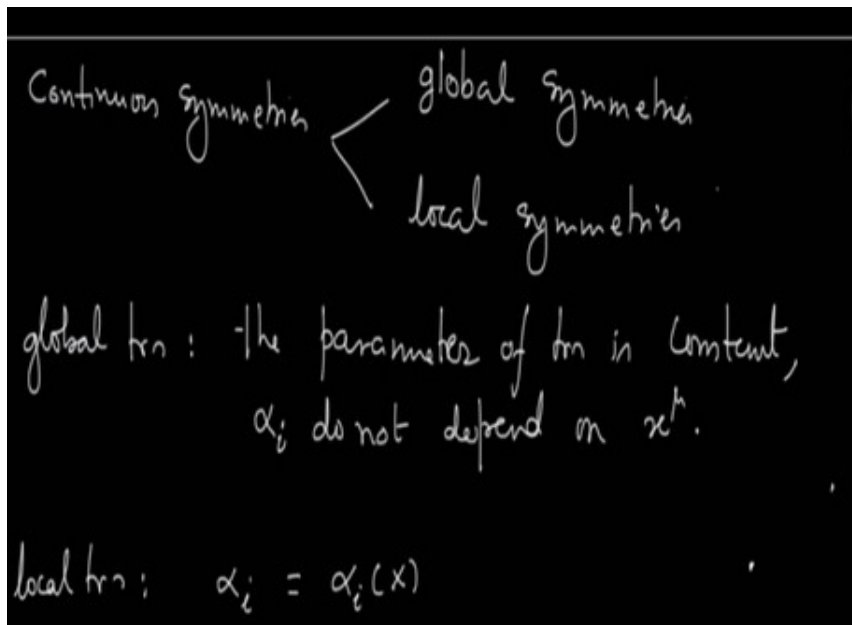 Continuous symmetries
global symmetries
local symmetries
global trn : the parameter of trn is constant,
αᵢ do not depend on x^μ.
local trn : αᵢ = αᵢ(x)